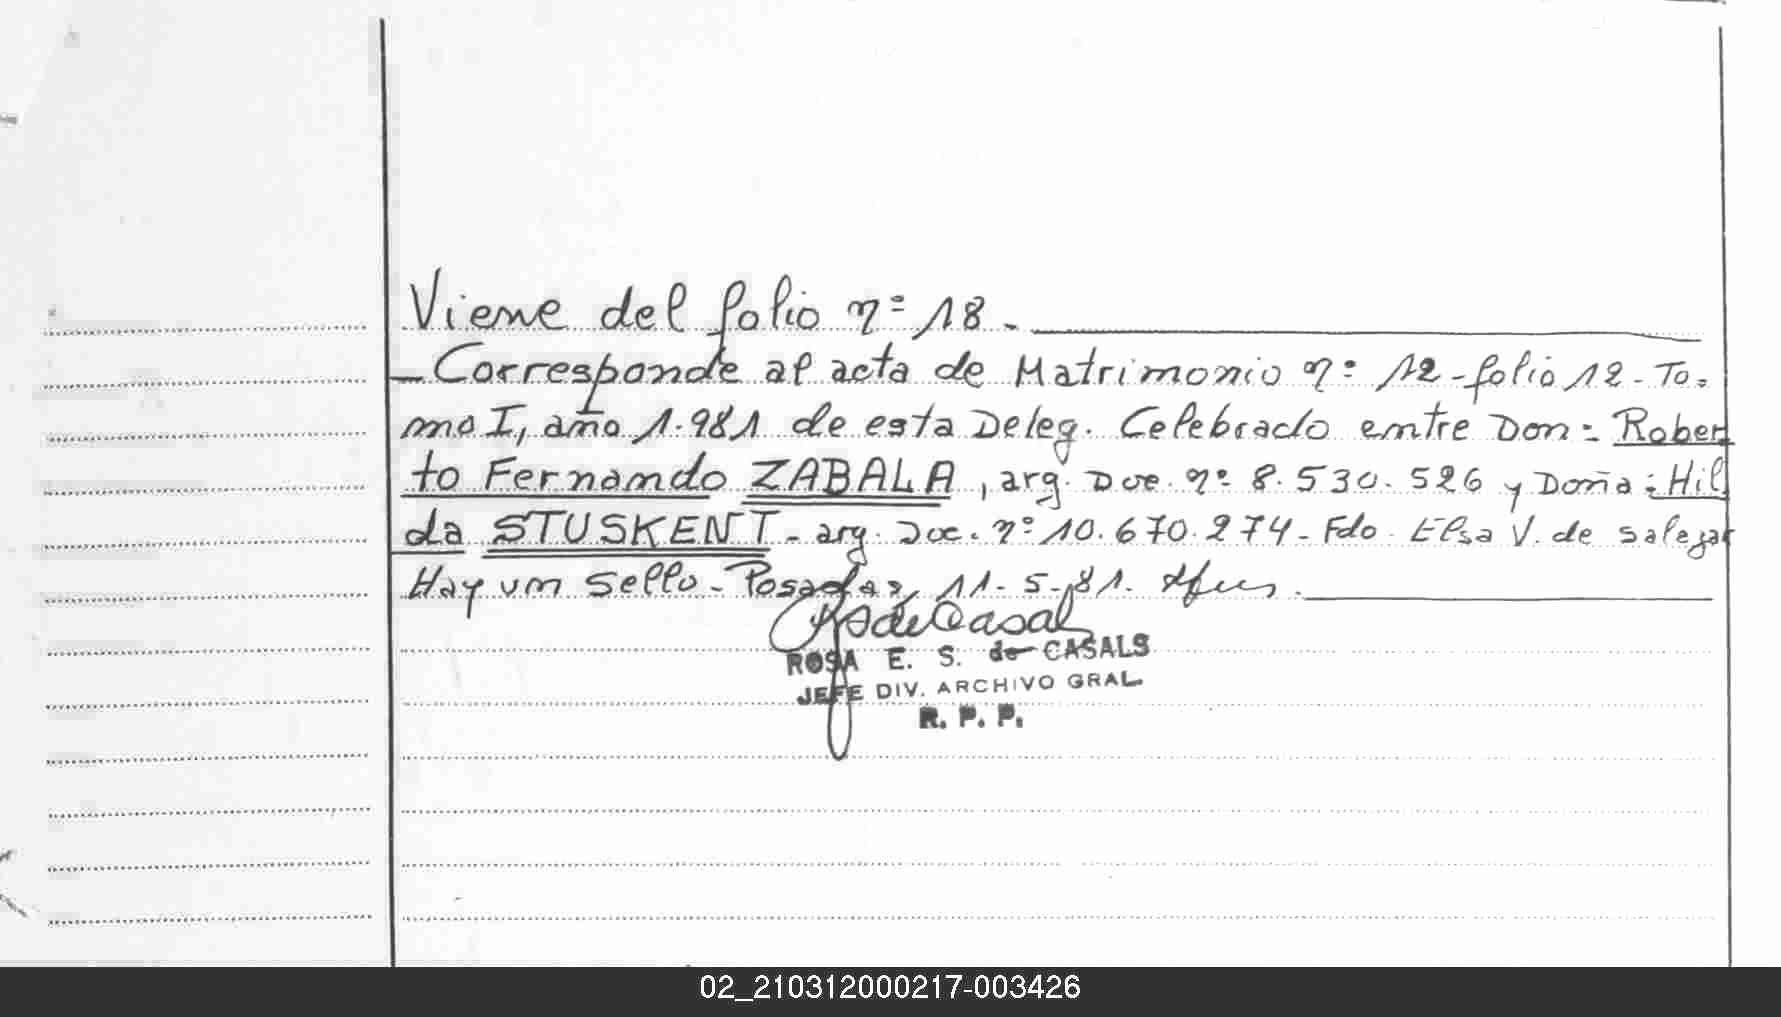 Viene del folio nº 18.
- Corresponde al acta de Matrimonio nº 12 - folio 12 - To-
mo I, año 1.981 de esta Deleg. Celebrado entre Don: Rober
to Fernando ZABALA, arg. Doc. nº 8.530.526 y Doña: Hil
da STUSKENT - arg. Doc. nº 10.670.274 - Fdo. Elsa V. de
Hay un sello - Posadas, 11-5-81.
ROSA E. S. de CASALS
JEFE DIV. ARCHIVO GRAL
R. P. P.
02_210312000217-003426